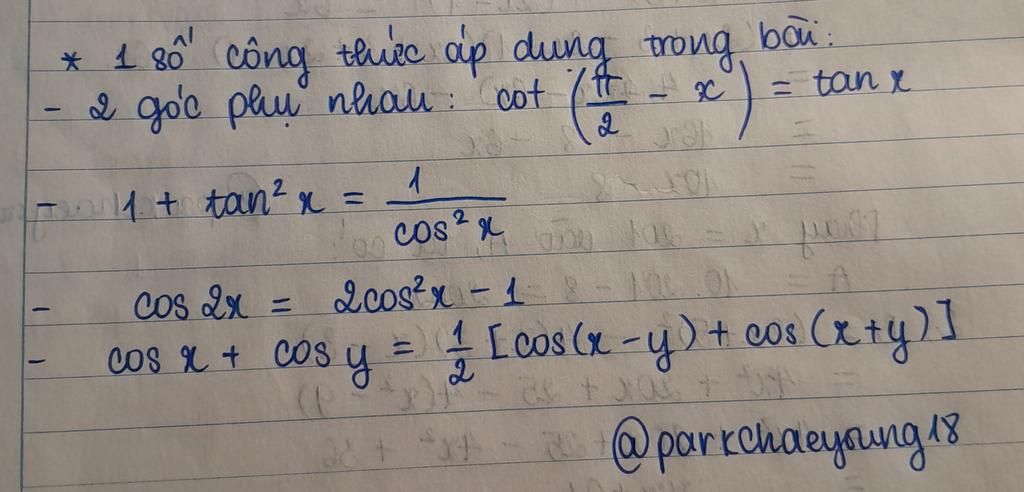 * 1 số công thức áp dụng trong bài:
- 2 góc phụ nhau: cot (π/2 - x) = tan x
- 1 + tan² x = 1/cos² x
- cos 2x = 2cos²x - 1
- cos x + cos y = 1/2 [cos(x - y) + cos (x+y)]
@parkchaeyoung18